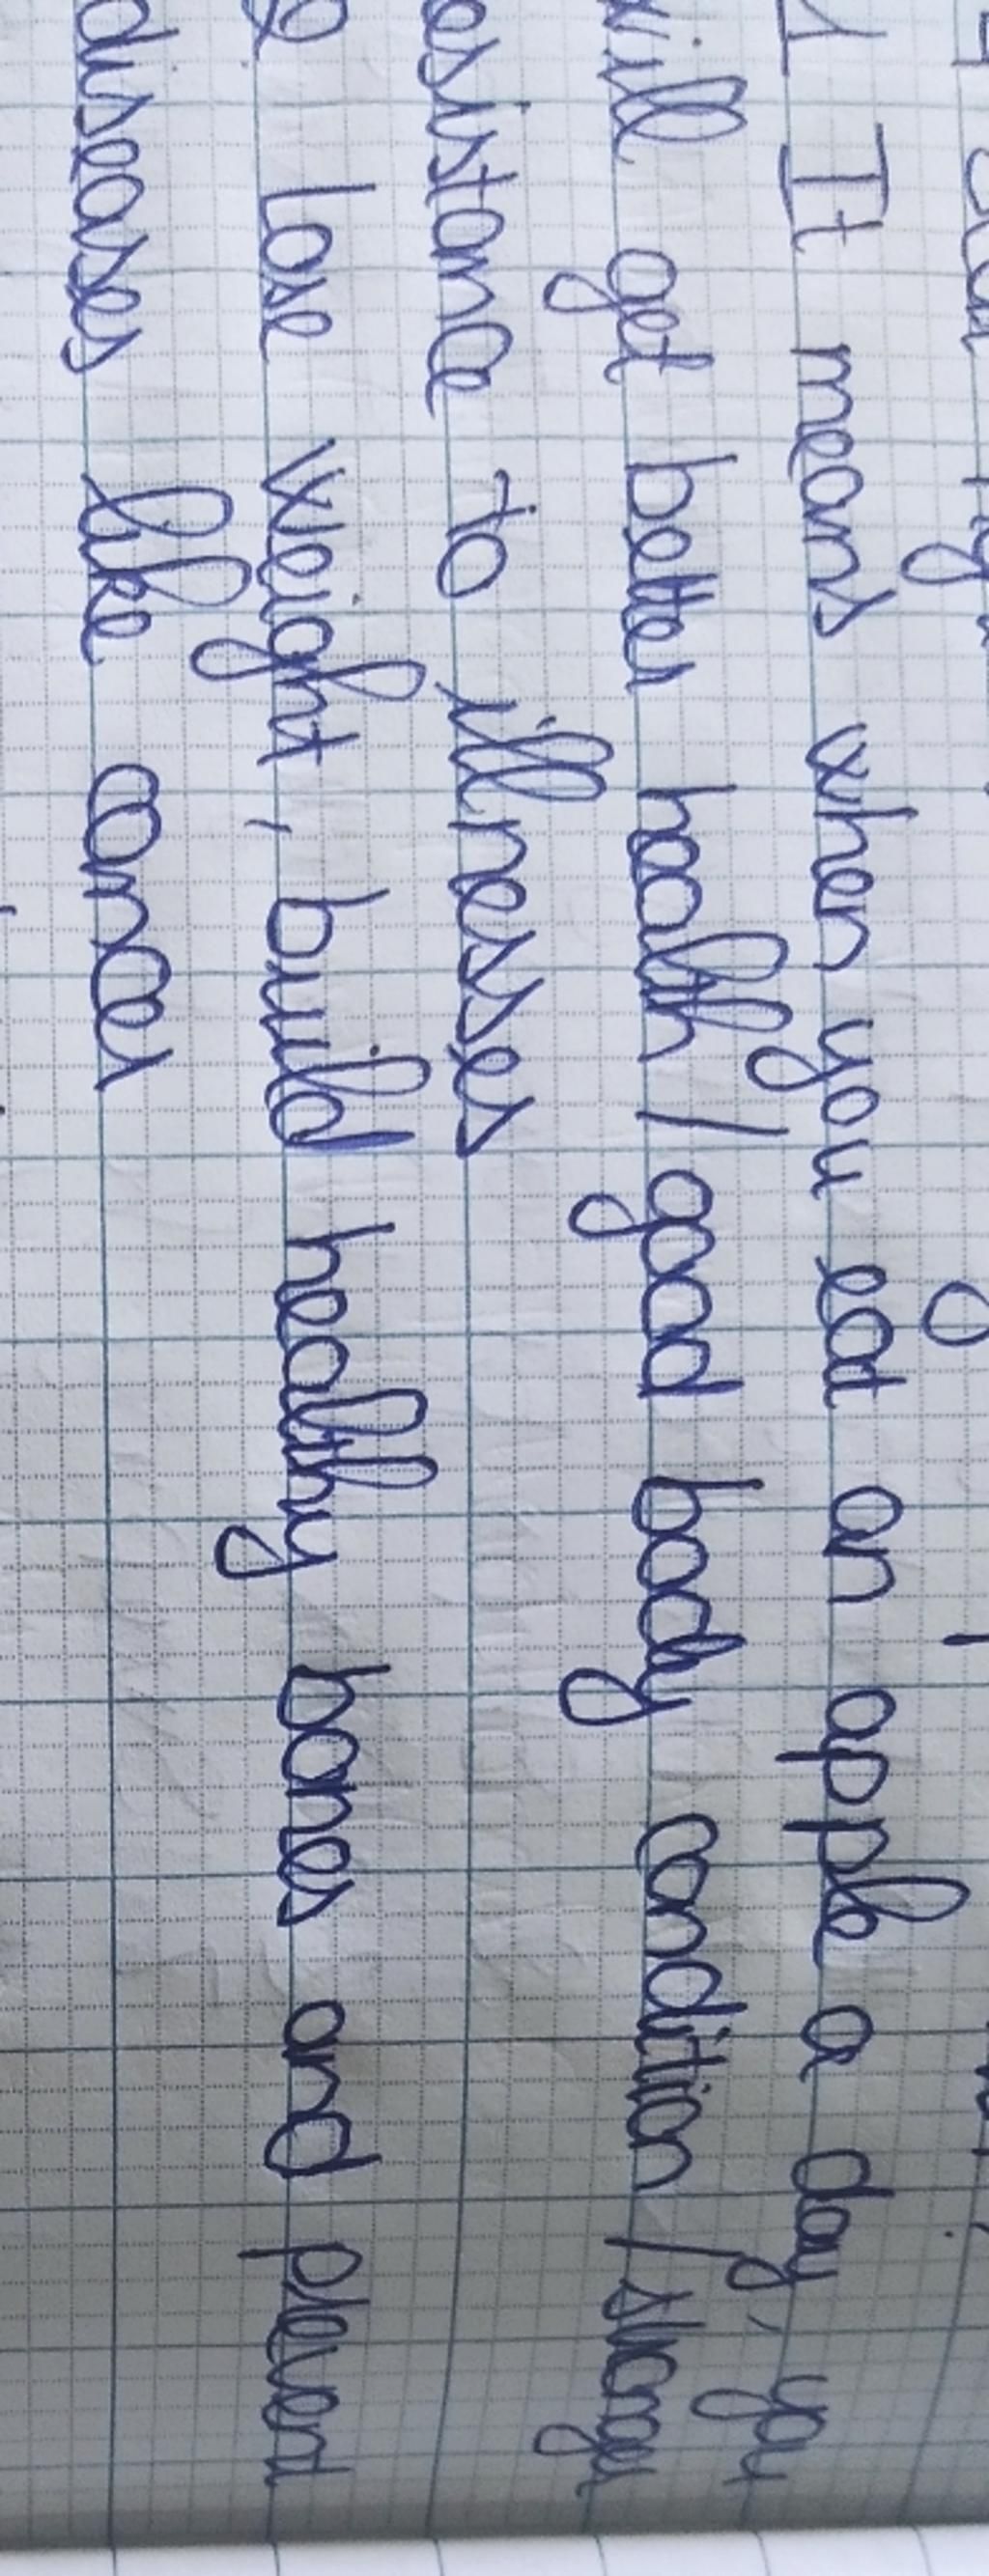 1 It means when you eat an apple a day, you
will get better health / good body condition / stronger
resistance to illnesses
2 lose weight, build healthy bones and prevent
diseases like cancer